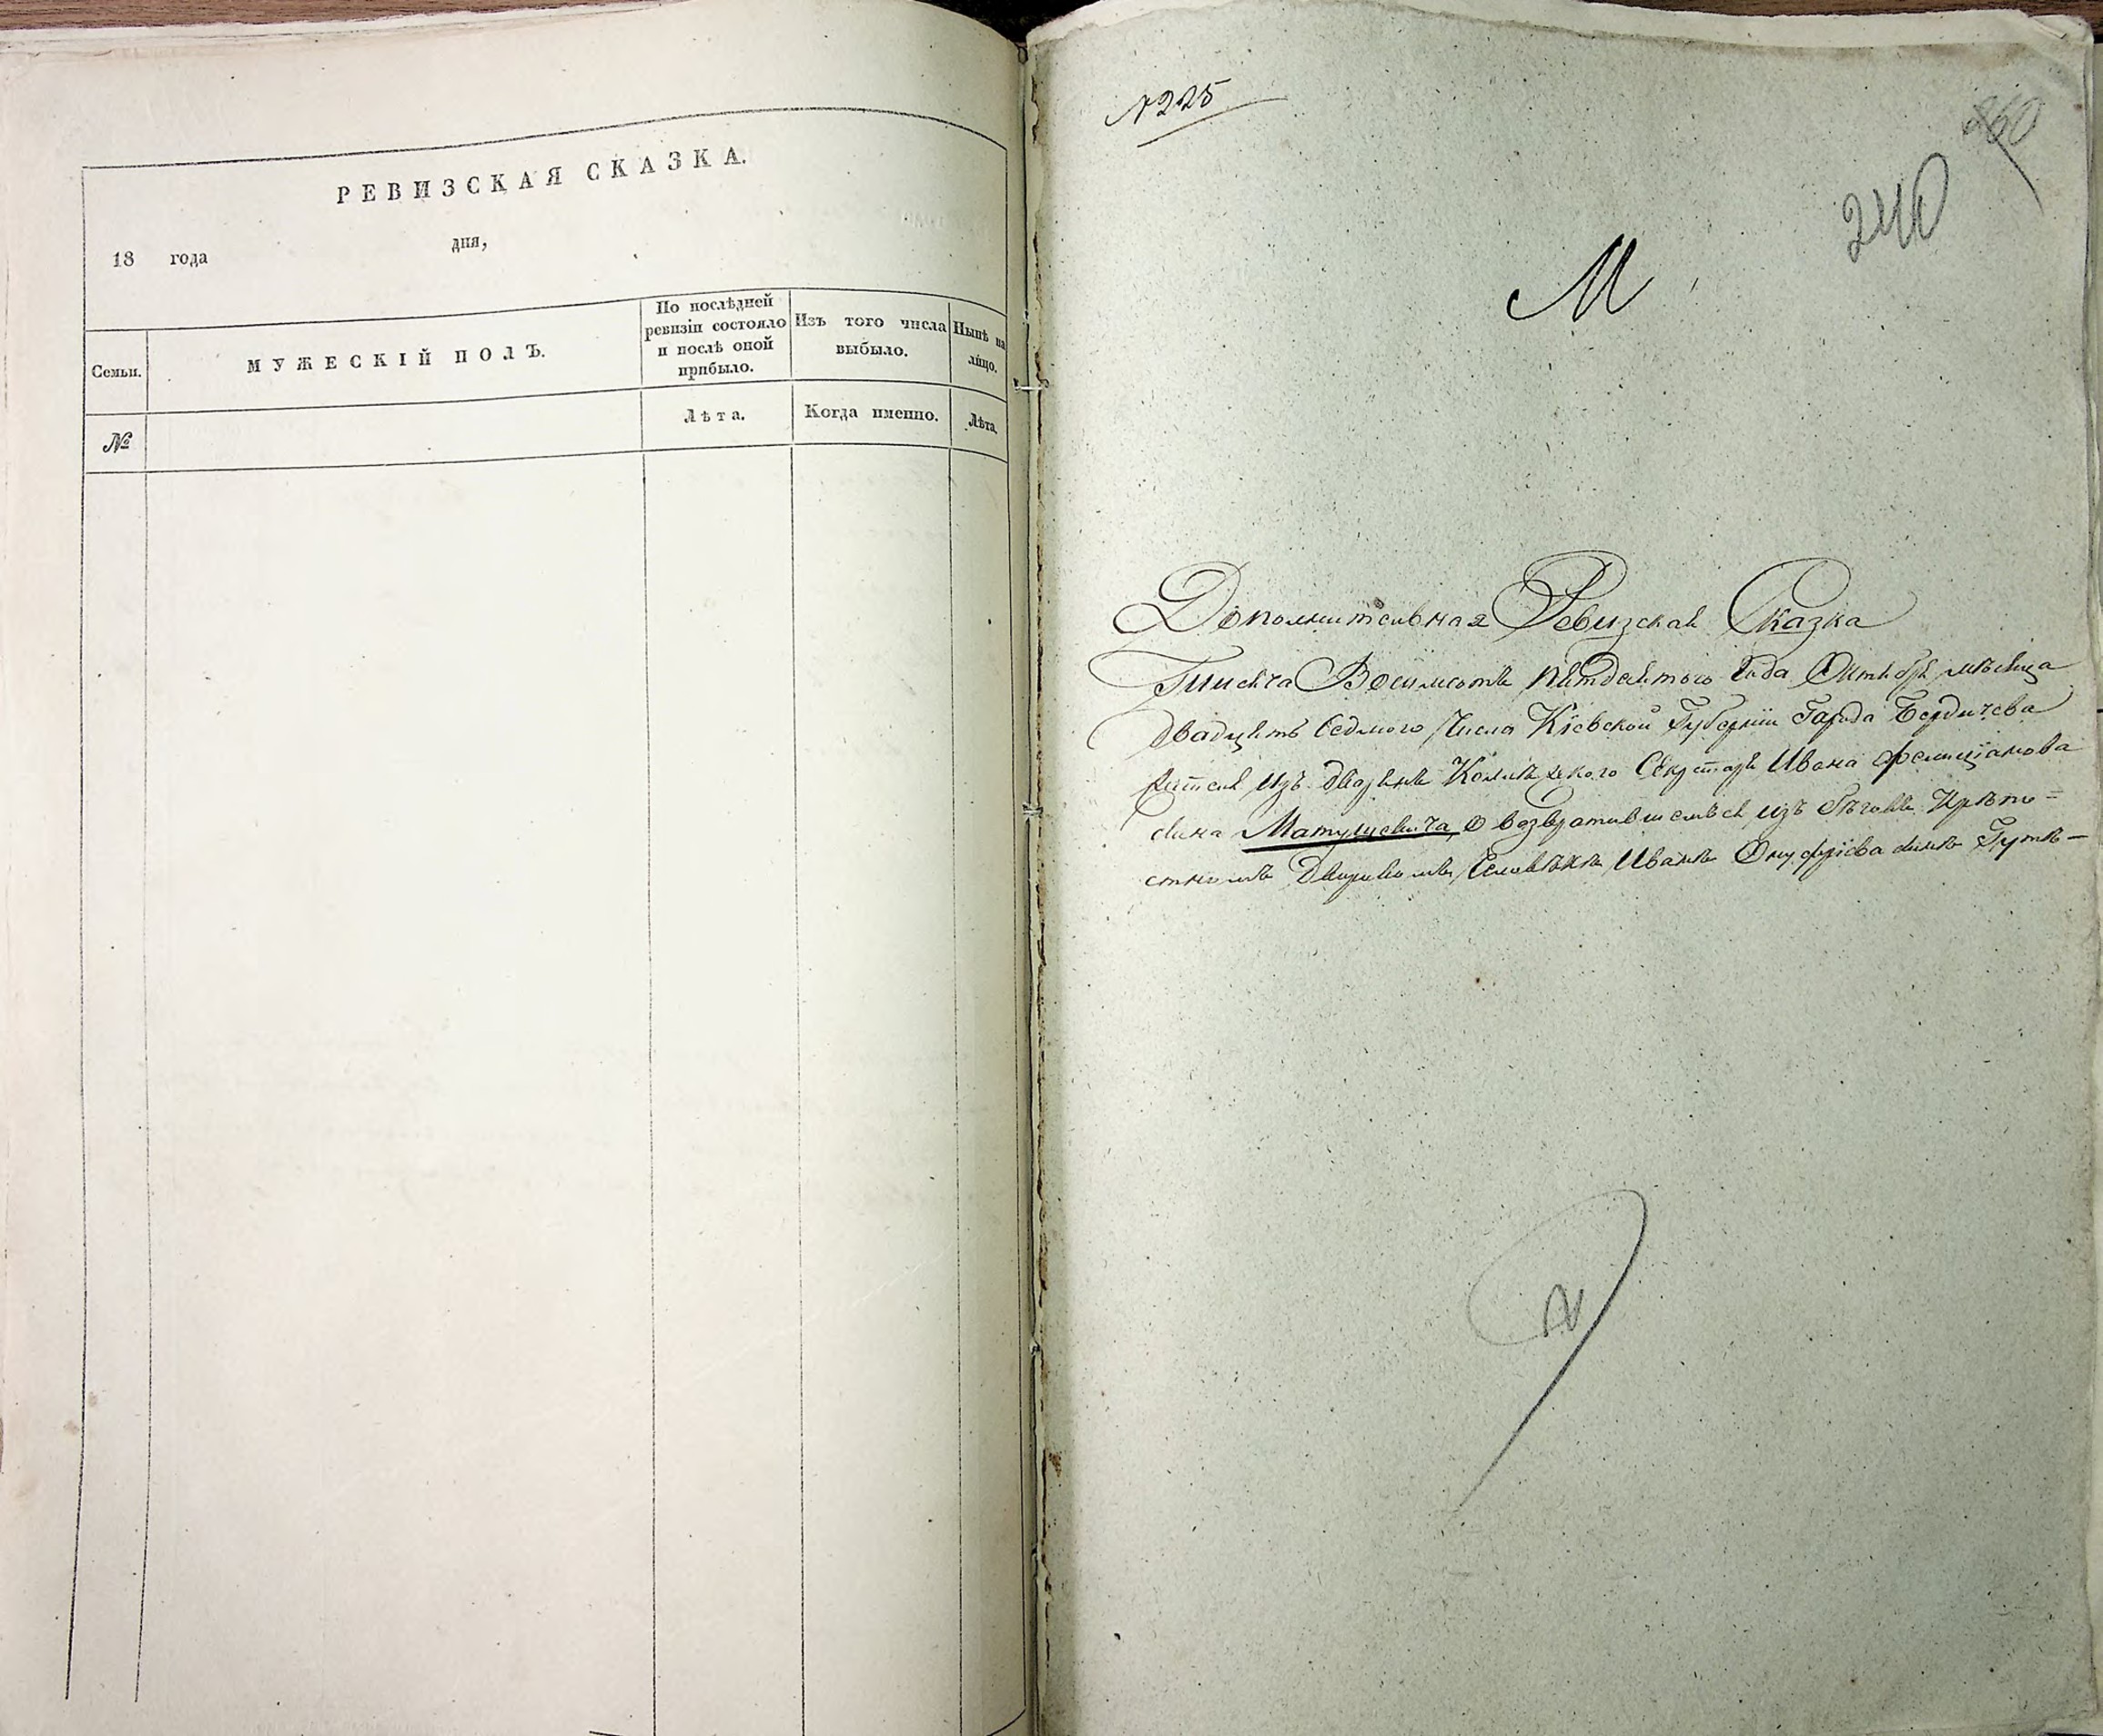 РЕВИЗСКАЯ СКАЗКА.
18 года дня,
Семьи.
МУЖЕСКІЙ ПОЛЪ.
По послѣдней
ревизіи состояло
и послѣ оной
прибыло.
Изъ того числа
выбыло.
Нынѣ на
лицо.
№
Лѣта.
Когда именно.
Лѣта.
№ 225
240
М
Дополнительная Ревизская Сказка
Тысяча Восимсотъ пятдесятого Года Октября мѣсяца
двадцять седмого Числа Кіевской Губерніи Города Бердичева
изъ дворянъ Секретаря Ивана Фелиціанова
сина Матушевича о возвратившемъся изъ бѣговъ Крѣпо=
стномъ Дворовомъ Человѣкѣ Иванѣ Онуфріева синѣ